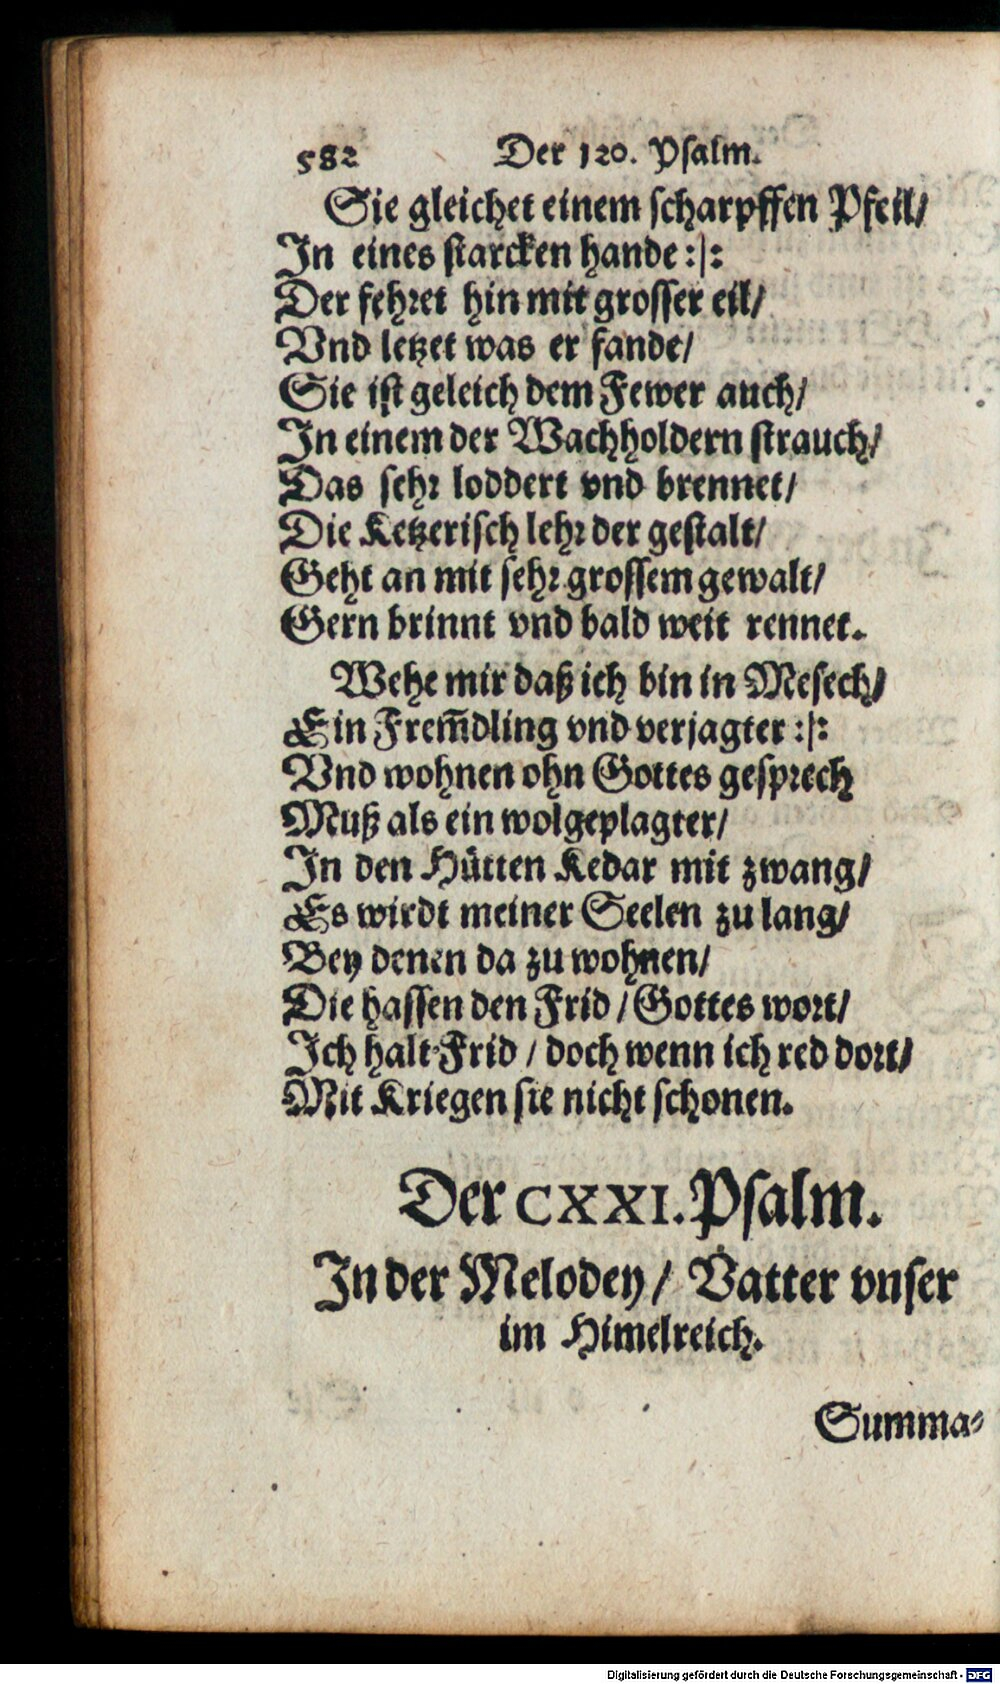 582 Der 120. Psalm.
Sie gleichet einem scharpffen Pfeil/
In eines starcken hande :|:
Der fehret hin mit grosser eil/
Vnd letzet was er fande/
Sie ist geleich dem Fewer auch/
In einem der Wachholdern strauch/
Das sehr loddert vnd brennet/
Die Ketzerisch lehr der gestalt/
Geht an mit sehr grossem gewalt/
Gern brinnt vnd bald weit rennet.
Wehe mir daß ich bin in Mesech/
Ein Frem̃dling vnd verjagter :|:
Vnd wohnen ohn Gottes gesprech
Muß als ein wolgeplagter/
In den Hütten Kedar mit zwang/
Es wirdt meiner Seelen zu lang/
Bey denen da zu wohnen/
Die hassen den Frid / Gottes wort/
Ich halt Frid / doch wenn ich red dort/
Mit Kriegen sie nicht schonen.
Der CXXI. Psalm.
In der Melodey / Vatter vnser
im Himelreich.
Summa-
Digitalisierung gefördert durch die Deutsche Forschungsgemeinschaft - DFG